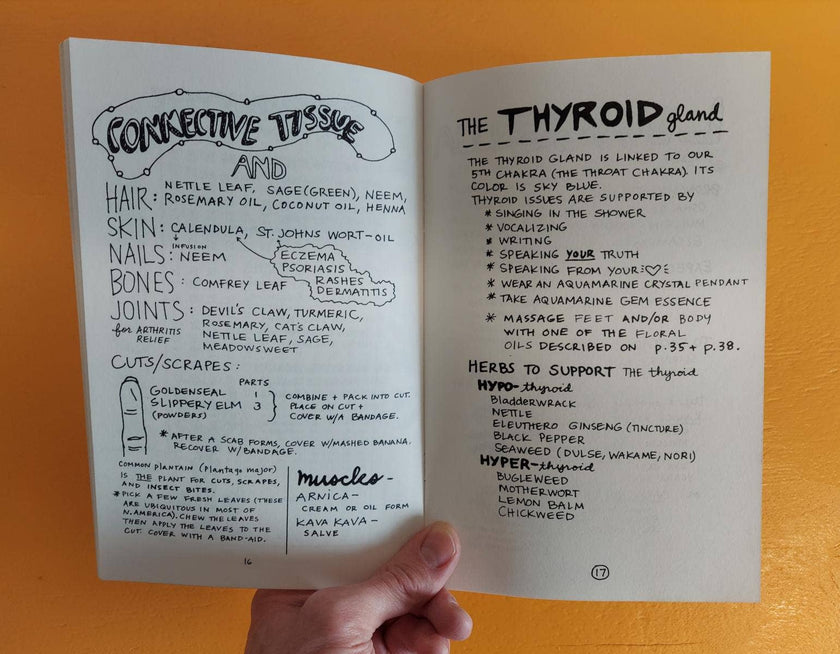 CONNECTIVE TISSUE
AND
HAIR: NETTLE LEAF, SAGE (GREEN), NEEM,
ROSEMARY OIL, COCONUT OIL, HENNA
SKIN: CALENDULA, ST. JOHNS WORT-OIL
INFUSION
NAILS: NEEM
ECZEMA
PSORIASIS
RASHES
DERMATITIS
BONES: COMFREY LEAF
JOINTS: DEVIL'S CLAW, TURMERIC,
for ARTHRITIS RELIEF
ROSEMARY, CAT'S CLAW,
NETTLE LEAF, SAGE,
MEADOWSWEET
CUTS/SCRAPES:
PARTS
GOLDENSEAL 1
SLIPPERY ELM 3
(POWDERS)
COMBINE + PACK INTO CUT.
PLACE ON CUT +
COVER W/A BANDAGE.
* AFTER A SCAB FORMS, COVER W/MASHED BANANA.
RECOVER W/BANDAGE.
COMMON PLANTAIN (Plantago major)
IS THE PLANT FOR CUTS, SCRAPES,
AND INSECT BITES.
* PICK A FEW FRESH LEAVES (THESE
ARE UBIQUITOUS IN MOST OF
N. AMERICA). CHEW THE LEAVES
THEN APPLY THE LEAVES TO THE
CUT. COVER WITH A BAND-AID.
muscles-
ARNICA-
CREAM OR OIL FORM
KAVA KAVA-
SALVE
16
THE THYROID gland
THE THYROID GLAND IS LINKED TO OUR
5TH CHAKRA (THE THROAT CHAKRA). ITS
COLOR IS SKY BLUE.
THYROID ISSUES ARE SUPPORTED BY
* SINGING IN THE SHOWER
* VOCALIZING
* WRITING
* SPEAKING YOUR TRUTH
* SPEAKING FROM YOUR ♡
* WEAR AN AQUAMARINE CRYSTAL PENDANT
* TAKE AQUAMARINE GEM ESSENCE
* MASSAGE FEET AND/OR BODY
WITH ONE OF THE FLORAL
OILS DESCRIBED ON p.35 + p.38.
HERBS TO SUPPORT THE thyroid
HYPO-thyroid
BladderWRACK
NETTLE
ELEUTHERO GINSENG (TINCTURE)
BLACK PEPPER
SEAWEED (DULSE, WAKAME, NORI)
HYPER-thyroid
BUGLEWEED
MOTHERWORT
LEMON BALM
CHICKWEED
17